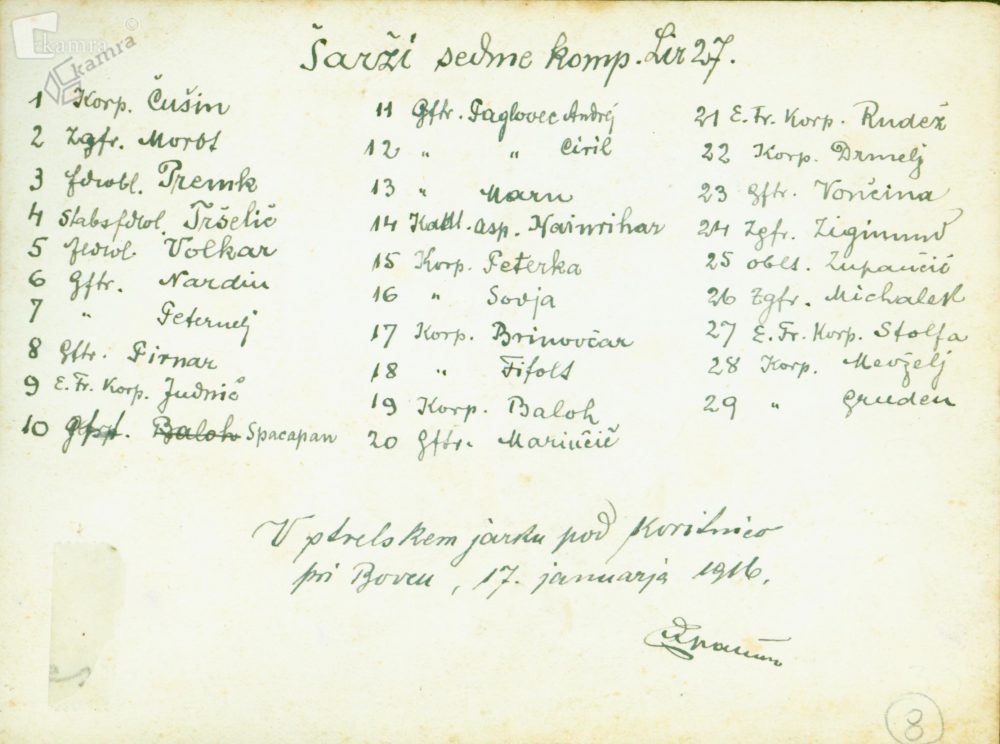 kamra
kamra
Šarži sedme komp. Lir 27.
1 Korp. Čušin
2 Zgfr. Morot
3 fdwbl. Premk
4 Stabsfdwl. Tršelič
5 fedwl. Volkar
6 Gftr. Nardin
7 " Peternelj
8 Gftr. Pirnar
9 E. Fr. Korp. Judnič
10 Baloh Spacapan
11 Gftr. Paglovec Andrej
12 " " Ciril
13 " Marn
14 Kad. asp. Nainrihar
15 Korp. Peterka
16 " Sodja
17 Korp. Brinovčar
18 " Fifolt
19 Korp. Baloh
20 Gftr. Marinčič
21 E. Fr. Korp. Rudež
22 Korp. Drmelj
23 Gftr. Vončina
24 Zgfr. Zigmund
25 oblt. Zupančič
26 Zgfr. Michalek
27 E. Fr. Korp. Stolfa
28 Korp. Mevželj
29 " Gruden
V strelskem jarku pod Koritnico
pri Bovcu, 17. januarja 1916.
8